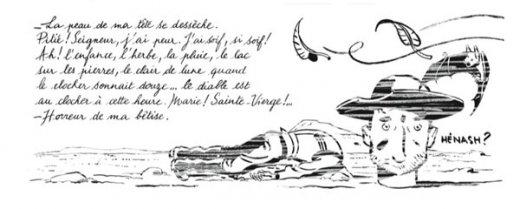 _La peau de ma tête se dessèche.
Pitié! Seigneur, j'ai peur. J'ai soif, si soif!
Ah! l'enfance, l'herbe, la pluie, le lac
sur les pierres, le clair de lune quand
le clocher sonnait douze... le diable est
au clocher à cette heure. Marie! Sainte-Vierge!...
_Horreur de ma bêtise.
HÉNASH?